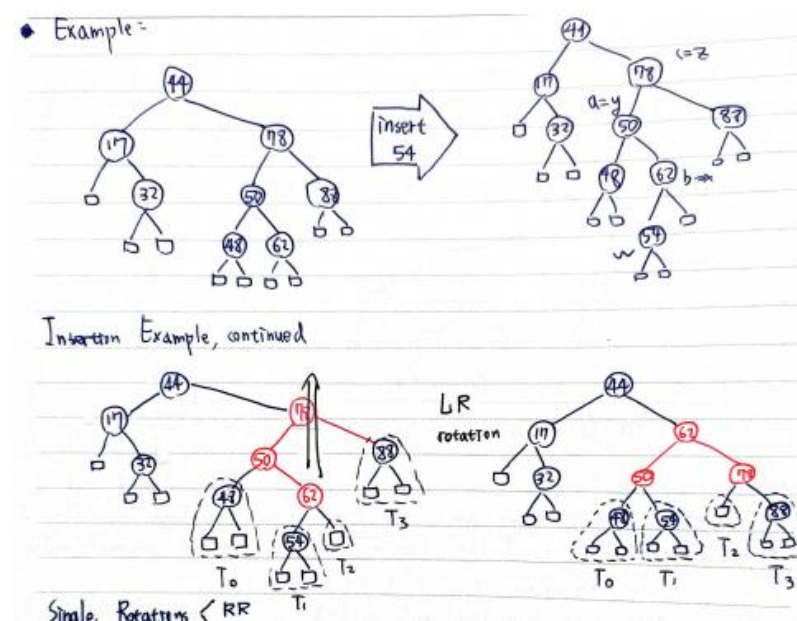 Example:
44
17 78
32 50 88
48 62
insert
54
44
c=z
17 78
a=y
32 50 88
48 62 b=x
54
w
Insertion Example, continued
44
17 78
32 50 88
48 62
54
T0 T1 T2 T3
LR
rotation
44
17 62
32 50 78
48 54 88
T0 T1 T2 T3
Single Rotations < RR